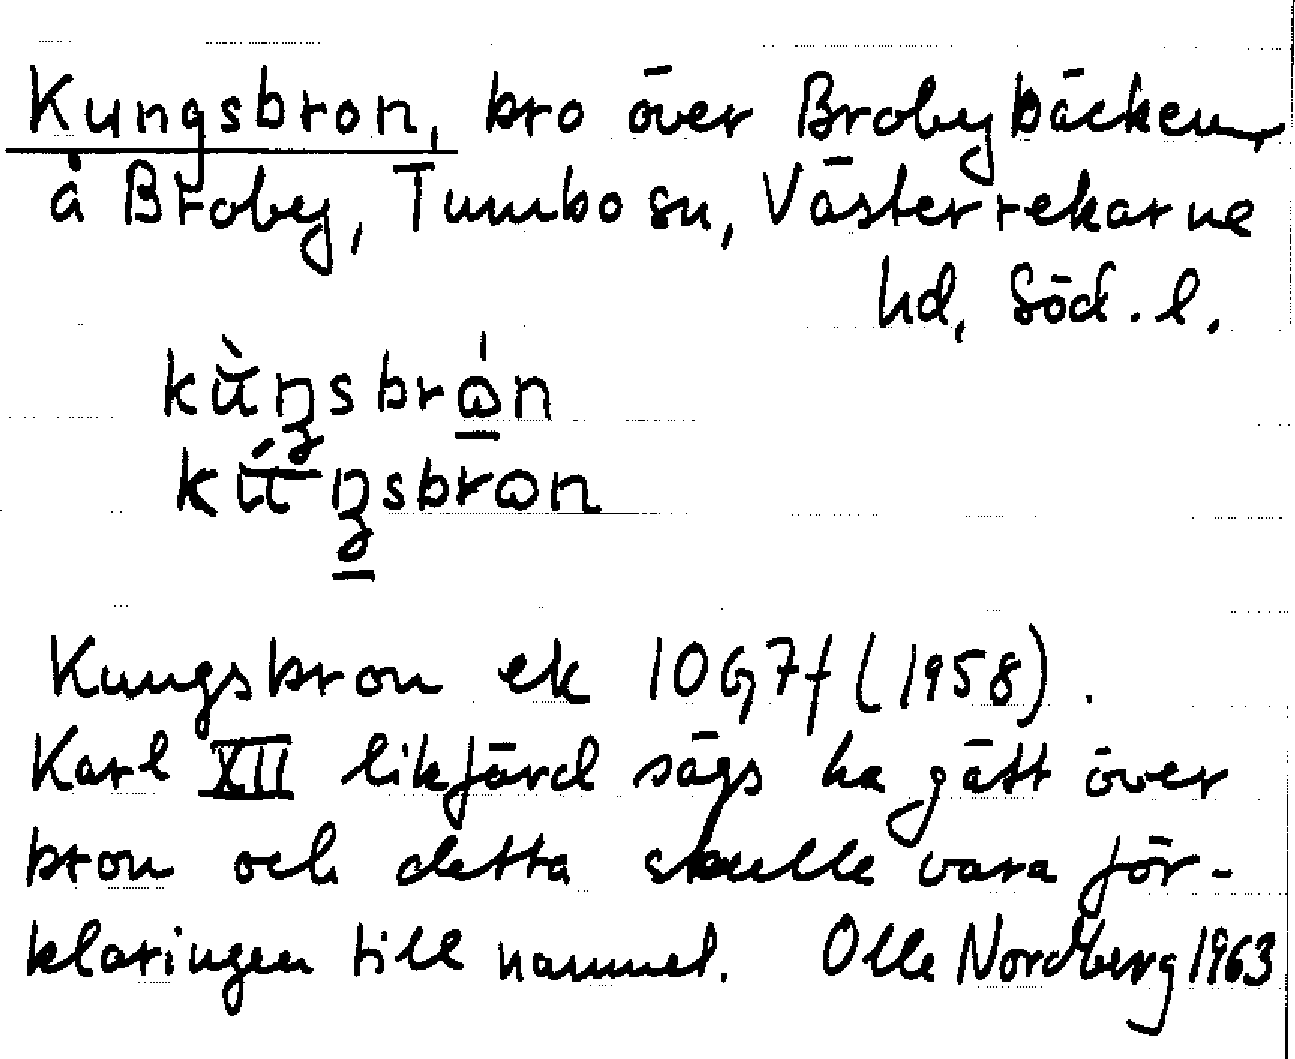 Kungsbron, bro över Brobybäcken,
å Broby, Tumbo sn, Västerrekarne
hd, Söd. l.
Kungsbron ek 10G7f (1958).
Karl XII likfärd sägs ha gått över
bron och detta skulle vara för-
klaringen till namnet. Olle Nordberg 1963